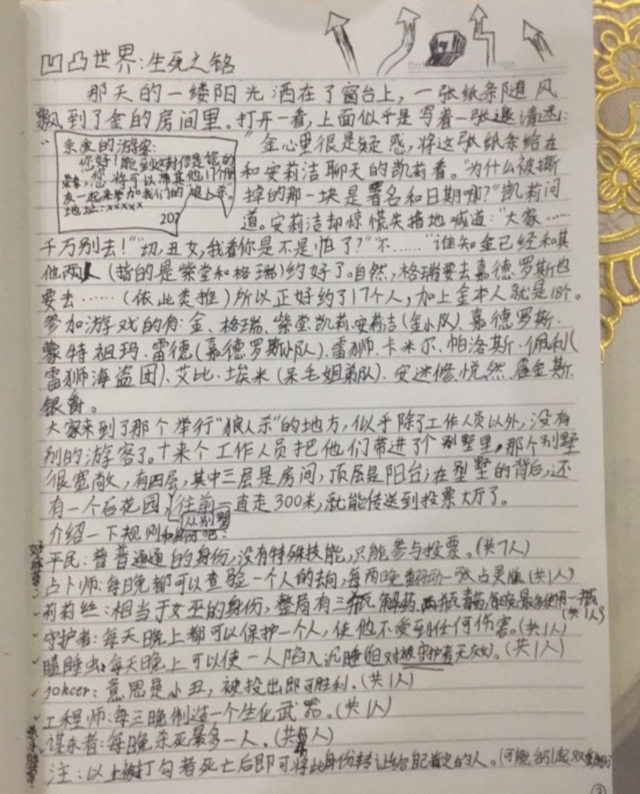 凹凸世界:生死之铭
那天的一缕阳光洒在了窗台上，一张纸条随风
飘到了金的房间里。打开一看，上面似乎是写着一张邀请函:
"亲爱的游客:
您好!能到这封信是您的
荣幸，您将可以带其他17个朋
友一起来参加我们的狼人杀。
地址:×××××
207
"金心里很是疑惑，将这张纸条给在
和安莉洁聊天的凯莉看。"为什么被撕
掉的那一块是署名和日期哪?"凯莉问
道。安莉洁却惊慌失措地喊道:"大家……
千万别去!""切，丑女，我看你是不是怕了?""不……"谁知金已经和其
他两人(指的是紫堂和格瑞)约好了。自然，格瑞要去嘉德罗斯也
要去……(依此类推)所以正好约了17个人，加上金本人就是18个。
参加游戏的有:金、格瑞、紫堂、凯莉、安莉洁(金小队)、嘉德罗斯、
蒙特祖玛、雷德(嘉德罗斯小队)、雷狮、卡米尔、帕洛斯、佩利(
雷狮海盗团)、艾比、埃米(呆毛姐弟队)、安迷修、恍然、雀金斯、
银爵。
大家来到了那个举行"狼人杀"的地方，似乎除了工作人员以外，没有
别的游客了。十来个工作人员把他们带进了个别墅里，那个别墅
很宽敞，有四层，其中三层是房间，顶层是阳台;在别墅的背后，还
有一个后花园，从别墅往前一直走300米，就能传送到投票大厅了。
介绍一下规则和身份吧:
平民:普普通通的身份，没有特殊技能，只能参与投票。(共7人)
占卜师:每日晚都可以查验一个人的去向，每两晚翻动一张占灵牌(共1人)
莉莉丝:相当于女巫的身份，整局有三瓶解药，两瓶毒药，每晚最多使用一瓶(共1人)
守护者:每天晚上都可以保护一个人，使他不受到任何伤害。(共1人)
瞌睡虫:每天晚上可以使一人陷入沉睡(但对被守护者无效)。(共1人)
jokcer:意思是小丑，被投出即可胜利。(共1人)
工程师:每三晚制造一个生化武器。(共1人)
谋杀者:每日晚杀死最多一人。(共4人)
注:以上被打勾者死亡后即可将此身份转让给自己指定的人。(可能会引起双重身份)